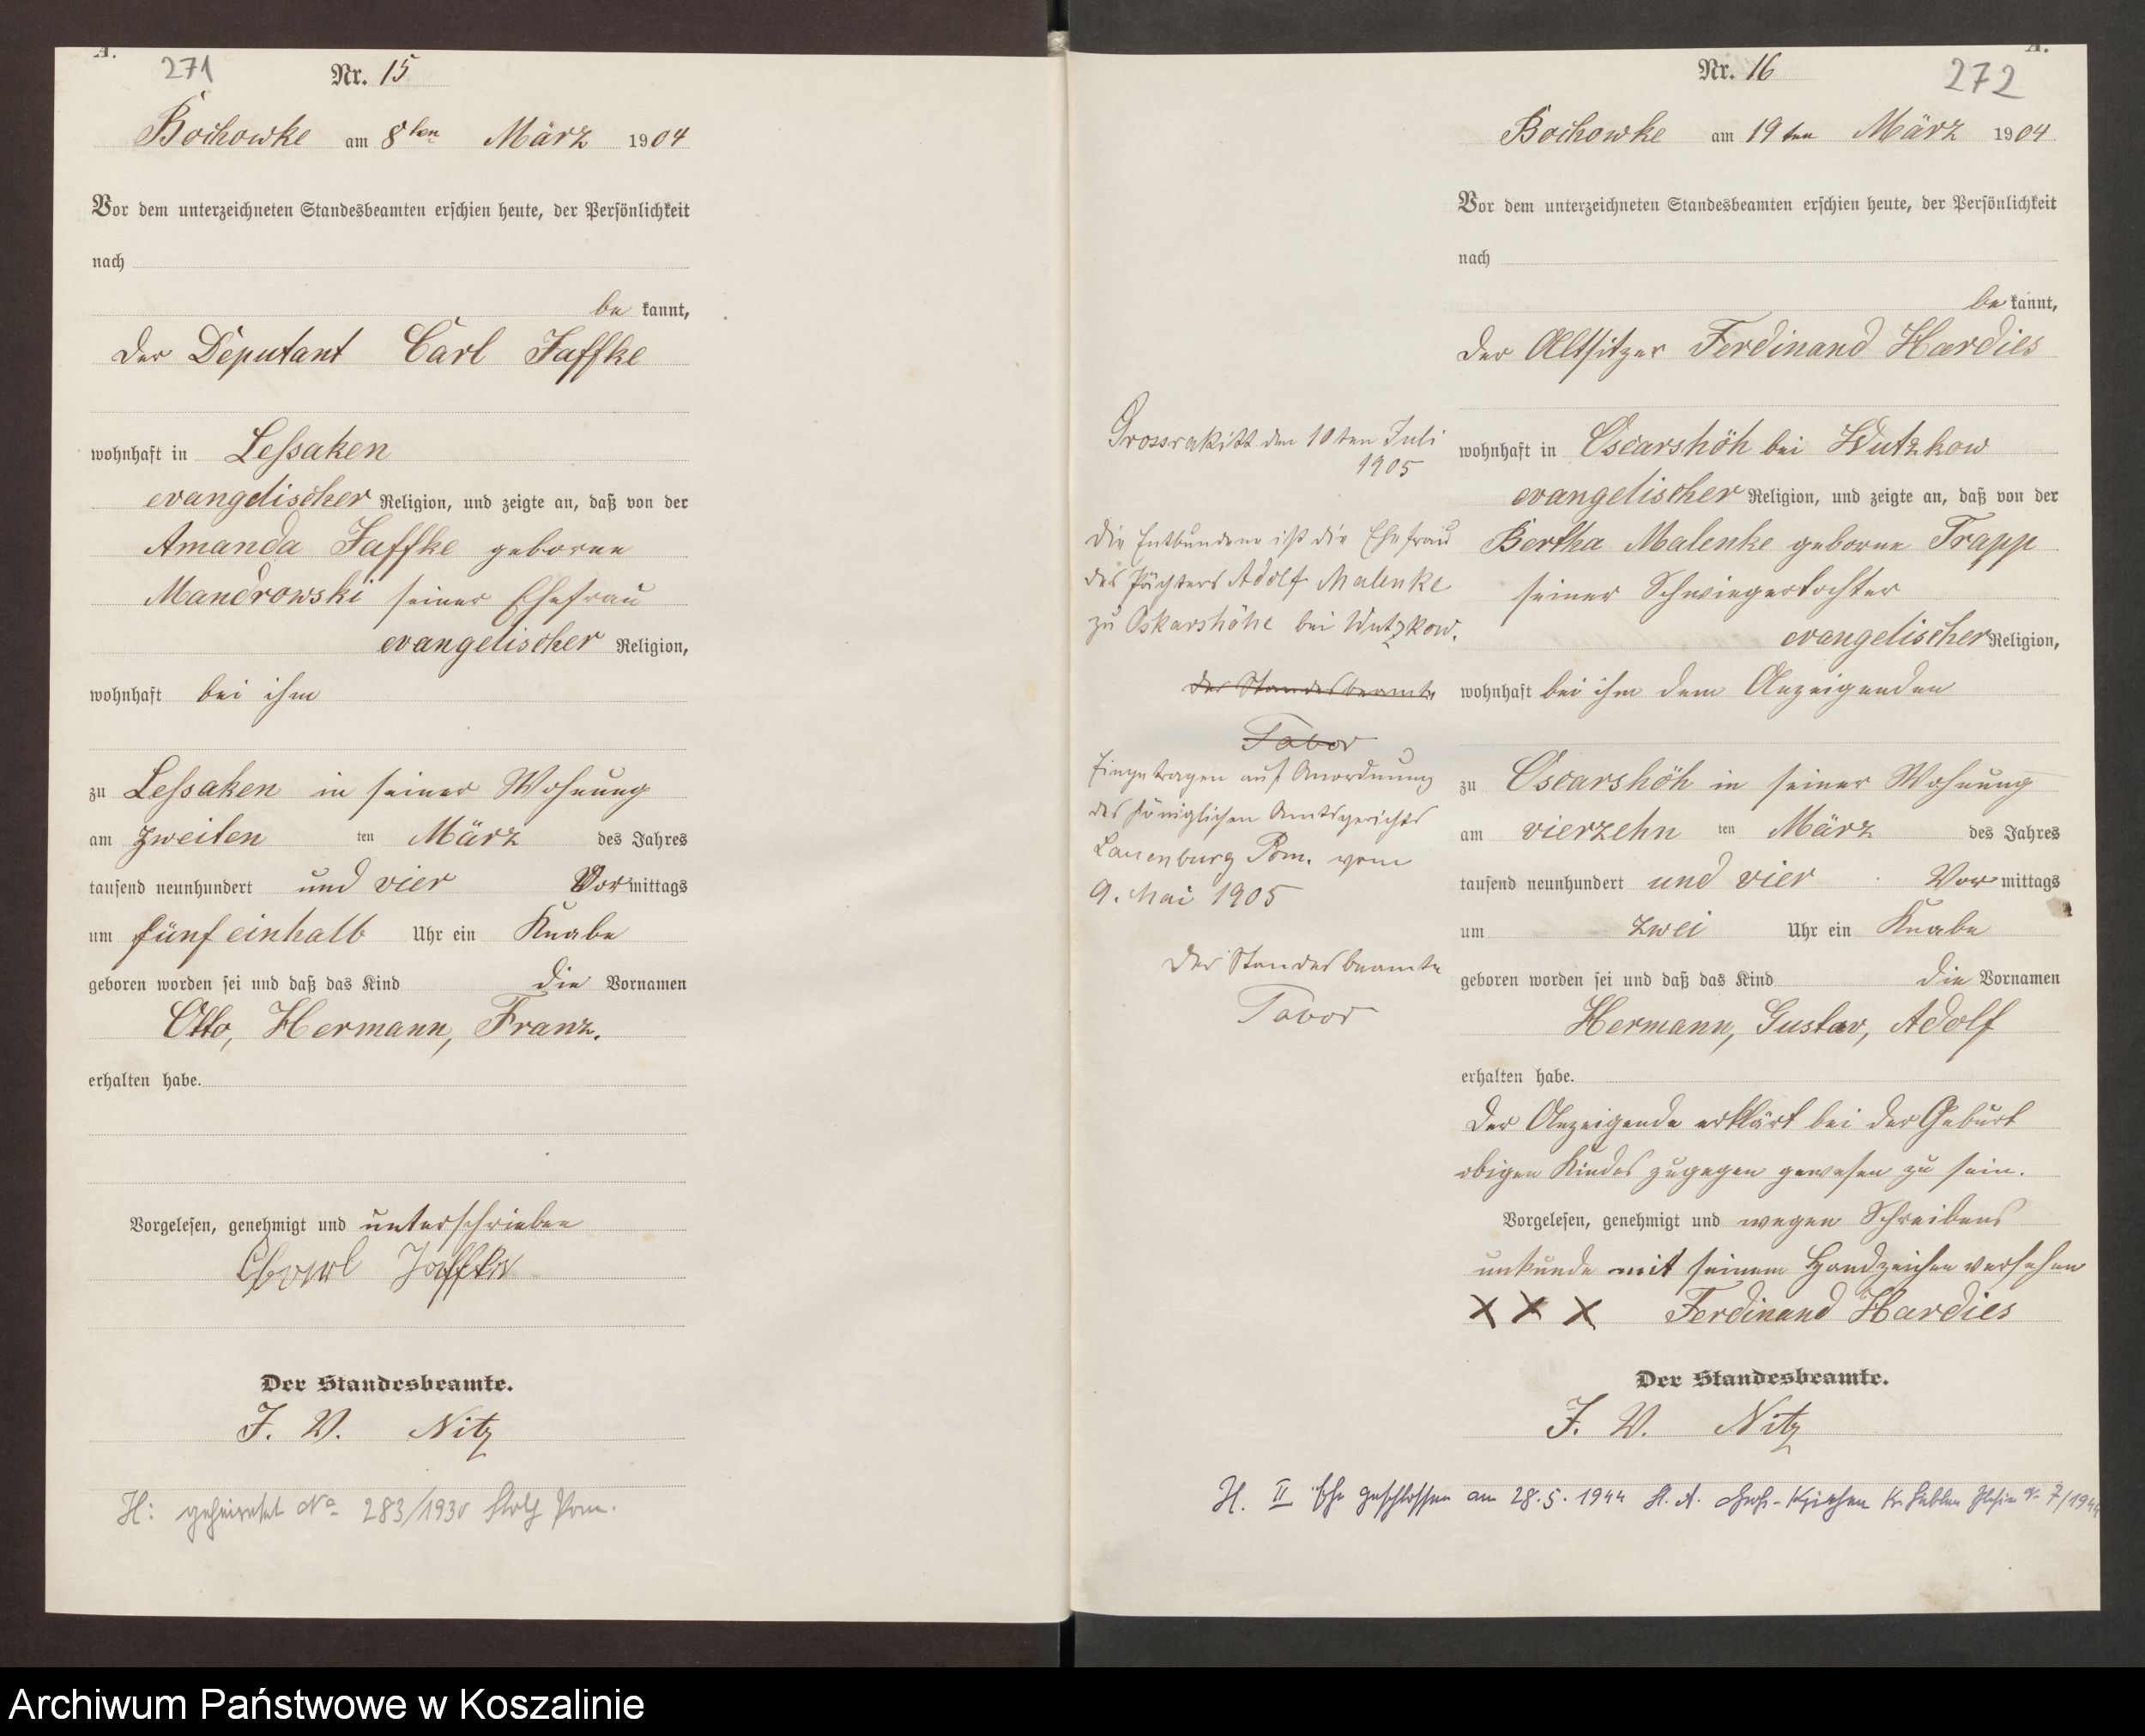 A.
271
Nr. 15
Bochowke am 8ten März 1904
Vor dem unterzeichneten Standesbeamten erschien heute, der Persönlichkeit
nach
be kannt,
der Deputant Carl Jaffke
wohnhaft in Lessaken
evangelischer Religion, und zeigte an, daß von der
Amanda Jaffke geborne
Mandrowski seiner Ehefrau
evangelischer Religion,
wohnhaft bei ihm
zu Lessaken in seiner Wohnung
am zweiten ten März des Jahres
tausend neunhundert und vier Vormittags
um fünf einhalb Uhr ein Knabe
geboren worden sei und daß das Kind die Vornamen
Otto, Hermann, Franz.
erhalten habe.
Vorgelesen, genehmigt und unterschrieben
Carl Jaffke
Der Standesbeamte.
J. V. Nitz
H: geheiratet No 283/1930 Stolp Pom.
A.
272
Nr. 16
Bochowke am 19ten März 1904
Vor dem unterzeichneten Standesbeamten erschien heute, der Persönlichkeit
nach
be kannt,
der Altsitzer Ferdinand Hardies
wohnhaft in Oscarshöh bei Wutzkow
evangelischer Religion, und zeigte an, daß von der
Bertha Malenke geborne Trapp
seiner Schwiegertochter
evangelischer Religion,
wohnhaft bei ihm dem Anzeigenden
zu Oscarshöh in seiner Wohnung
am vierzehn ten März des Jahres
tausend neunhundert und vier Vormittags
um zwei Uhr ein Knabe
geboren worden sei und daß das Kind die Vornamen
Hermann, Gustav, Adolf
erhalten habe.
Der Anzeigende erklärt bei der Geburt
obigen Kindes zugegen gewesen zu sein.
Vorgelesen, genehmigt und wegen Schreibens
unkunde mit seinem Handzeichen versehen
X X X Ferdinand Hardies
Der Standesbeamte.
J. V. Nitz
Grossrakitt den 10ten Juli
1905
Die Entbundene ist die Ehefrau
des Pächters Adolf Malenke
zu Oskarshöhe bei Wutzkow.
Der Standesbeamte
Tabor
Eingetragen auf Anordnung
des Königlichen Amtsgerichts
Lauenburg Pom. vom
9. Mai 1905
Der Standesbeamte
Tabor
H. II Ehe geschlossen am 28.5.1944 St. A. Kr. 7/1944
Archiwum Państwowe w Koszalinie